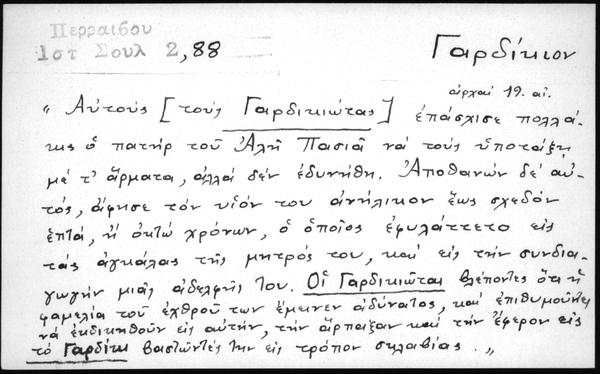 Περραιβου
1στ Σουλ 2,88
Γαρδίκιον
ἀρχαί 19. αἰ.
" Αὐτούς [τούς Γαρδικιώτας] ἐπάσχισε πολλά-
κις ὁ πατήρ τοῦ Ἀλῆ Πασιᾶ νά τούς ὑποτάξῃ
μέ τ' ἄρματα, ἀλλά δέν ἐδυνήθη. Ἀποθανών δέ αὐ-
τός, ἄφησε τόν υἱόν του ἀνήλικον ἕως σχεδόν
ἑπτά, ἤ ὀκτώ χρόνων, ὁ ὁποῖος ἐφυλάττετο εἰς
τάς ἀγκάλας τῆς μητρός του, καί εἰς τήν συνδια-
γωγήν μιᾶς ἀδελφῆς του. Οἱ Γαρδικιῶται βλέποντες ὅτι ἡ
φαμελία τοῦ ἐχθροῦ των ἔμεινεν ἀδύνατος, καί ἐπιθυμοῦντες
νά ἐκδικηθοῦν εἰς αὐτήν, τήν ἅρπαξαν καί τήν ἔφερον εἰς
τό Γαρδίκι βαστῶντές την εἰς τρόπον σκλαβιᾶς. "